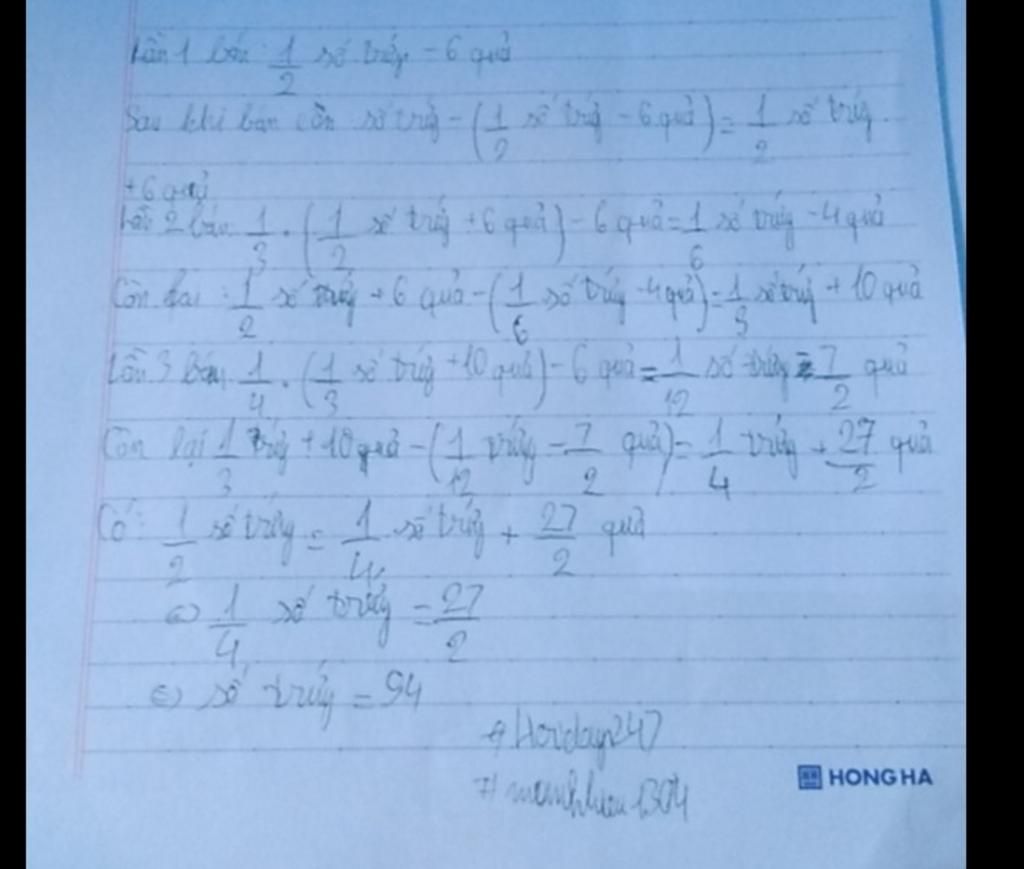 Lần 1 bán: 1/2 số trứng - 6 quả
Sau khi bán còn số trứng - (1/2 số trứng - 6 quả) = 1/2 số trứng
+ 6 quả
Lần 2 bán: 1/3 . (1/2 số trứng + 6 quả) - 6 quả = 1/6 số trứng - 4 quả
Còn lại: 1/2 số trứng + 6 quả - (1/6 số trứng - 4 quả) = 1/3 số trứng + 10 quả
Lần 3 bán: 1/4 . (1/3 số trứng + 10 quả) - 6 quả = 1/12 số trứng - 7/2 quả
Còn lại 1/3 trứng + 10 quả - (1/12 trứng - 7/2 quả) = 1/4 trứng + 27/2 quả
Có: 1/2 số trứng = 1/4 số trứng + 27/2 quả
⇔ 1/4 số trứng = 27/2
⇔ số trứng = 54
# Hoidap247
HONG HA